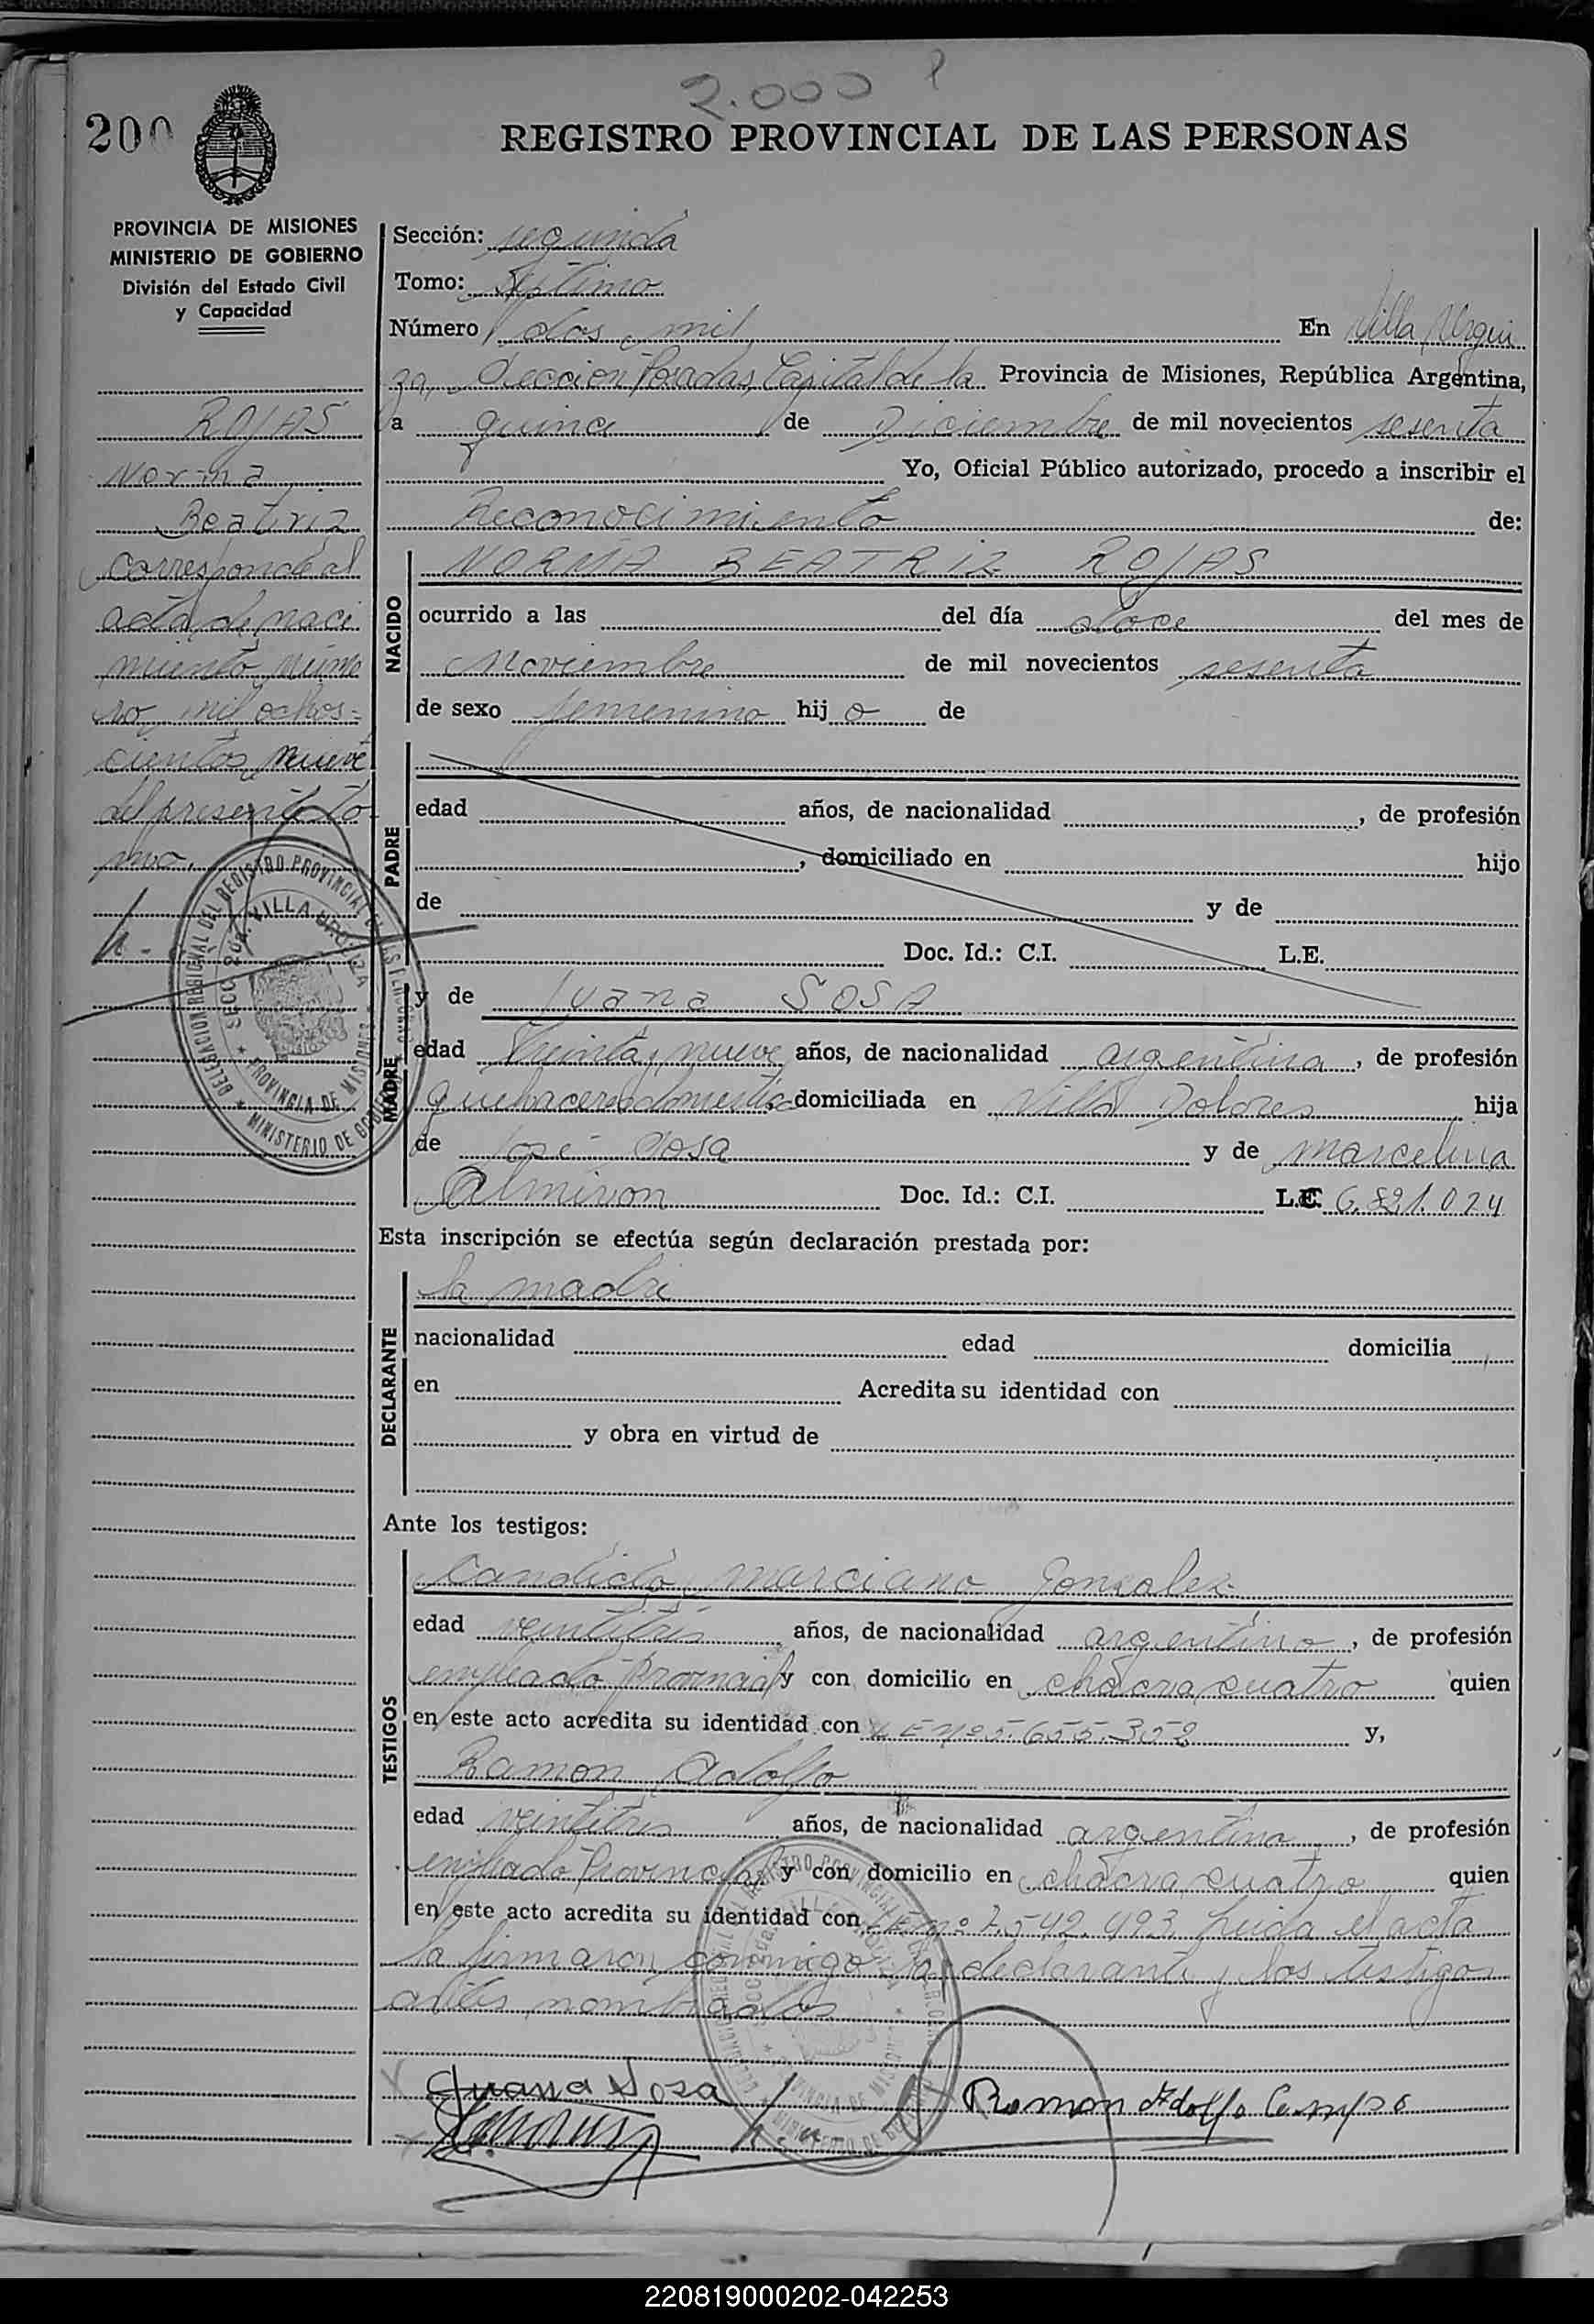 2.000
200
REGISTRO PROVINCIAL DE LAS PERSONAS
PROVINCIA DE MISIONES
MINISTERIO DE GOBIERNO
División del Estado Civil
y Capacidad
ROJAS
Norma
Beatriz
corresponde al
acta de naci
miento núme
ro mil ochos=
cientos nueve
del presente to
mo.
Sección: segunda
Tomo: Septimo
Número dos mil En Villa Urqui
za, Seccion Posadas, Capital de la Provincia de Misiones, República Argentina,
a quince de Diciembre de mil novecientos sesenta
Yo, Oficial Público autorizado, procedo a inscribir el
Reconocimiento de:
NACIDO
NORMA BEATRIZ ROJAS
ocurrido a las del día doce del mes de
Noviembre de mil novecientos sesenta
de sexo femenino hij o de
PADRE
edad años, de nacionalidad , de profesión
, domiciliado en hijo
de y de
Doc. Id.: C.I. L.E.
MADRE
y de Juana SOSA
edad treinta y nueve años, de nacionalidad argentina, de profesión
quehaceres domestic domiciliada en Villa Dolores hija
de José Sosa y de marcelina
Almiron Doc. Id.: C.I. L.C. 6.821.024
Esta inscripción se efectúa según declaración prestada por:
DECLARANTE
la madre
nacionalidad edad domicilia
en Acredita su identidad con
y obra en virtud de
Ante los testigos:
TESTIGOS
Candido marciano Gonzalez
edad veintitres años, de nacionalidad argentino, de profesión
empleado Provincial y con domicilio en chacra cuatro quien
en este acto acredita su identidad con L E Nº 5.655.352 y,
Ramon Adolfo
edad veintitres años, de nacionalidad argentino, de profesión
empleado Provincial y con domicilio en chacra cuatro quien
en este acto acredita su identidad con LE nº 7.542.493. Leida el acta
la firmaron conmigo la declarante y los testigos
antes nombrados
Juana Sosa
Ramon Adolfo Campos
DELEGACION REGIONAL DEL REGISTRO PROVINCIAL DE LAS PERSONAS
SECC. 2da. VILLA URQUIZA
PROVINCIA DE MISIONES
MINISTERIO DE GOBIERNO
220819000202-042253